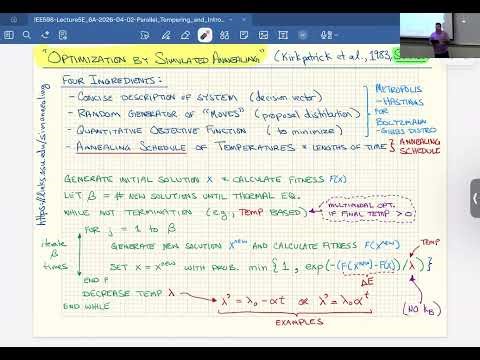 IEE598-Lecture5E_6A-2026-04-02-Parallel_Tempering_and_Intro...
"OPTIMIZATION BY SIMULATED ANNEALING" (Kirkpatrick et al., 1983,
FOUR INGREDIENTS:
- CONCISE DESCRIPTION OF SYSTEM (decision vector)
- RANDOM GENERATOR OF "MOVES" (proposal distribution)
- QUANTITATIVE OBJECTIVE FUNCTION (to minimize)
- ANNEALING SCHEDULE OF TEMPERATURES & LENGTHS OF TIME
METROPOLIS
-HASTINGS
FOR
BOLTZMANN
-GIBBS DISTRO
ANNEALING
SCHEDULE
GENERATE INITIAL SOLUTION X & CALCULATE FITNESS F(X)
LET β = # NEW SOLUTIONS UNTIL THERMAL EQ.
WHILE NOT TERMINATION (e.g., TEMP BASED)
MULTIMODAL OPT.
IF FINAL TEMP > 0
FOR j = 1 TO β
iterate
β
times
GENERATE NEW SOLUTION X^NEW AND CALCULATE FITNESS F(X^NEW)
TEMP
SET X = X^NEW WITH PROB. min{1, exp(-(F(X^NEW)-F(X))/λ)}
ΔE
(NO k_B)
END F
DECREASE TEMP λ
λ' = λ₀ - αt OR λ' = λ₀α^t
EXAMPLES
END WHILE